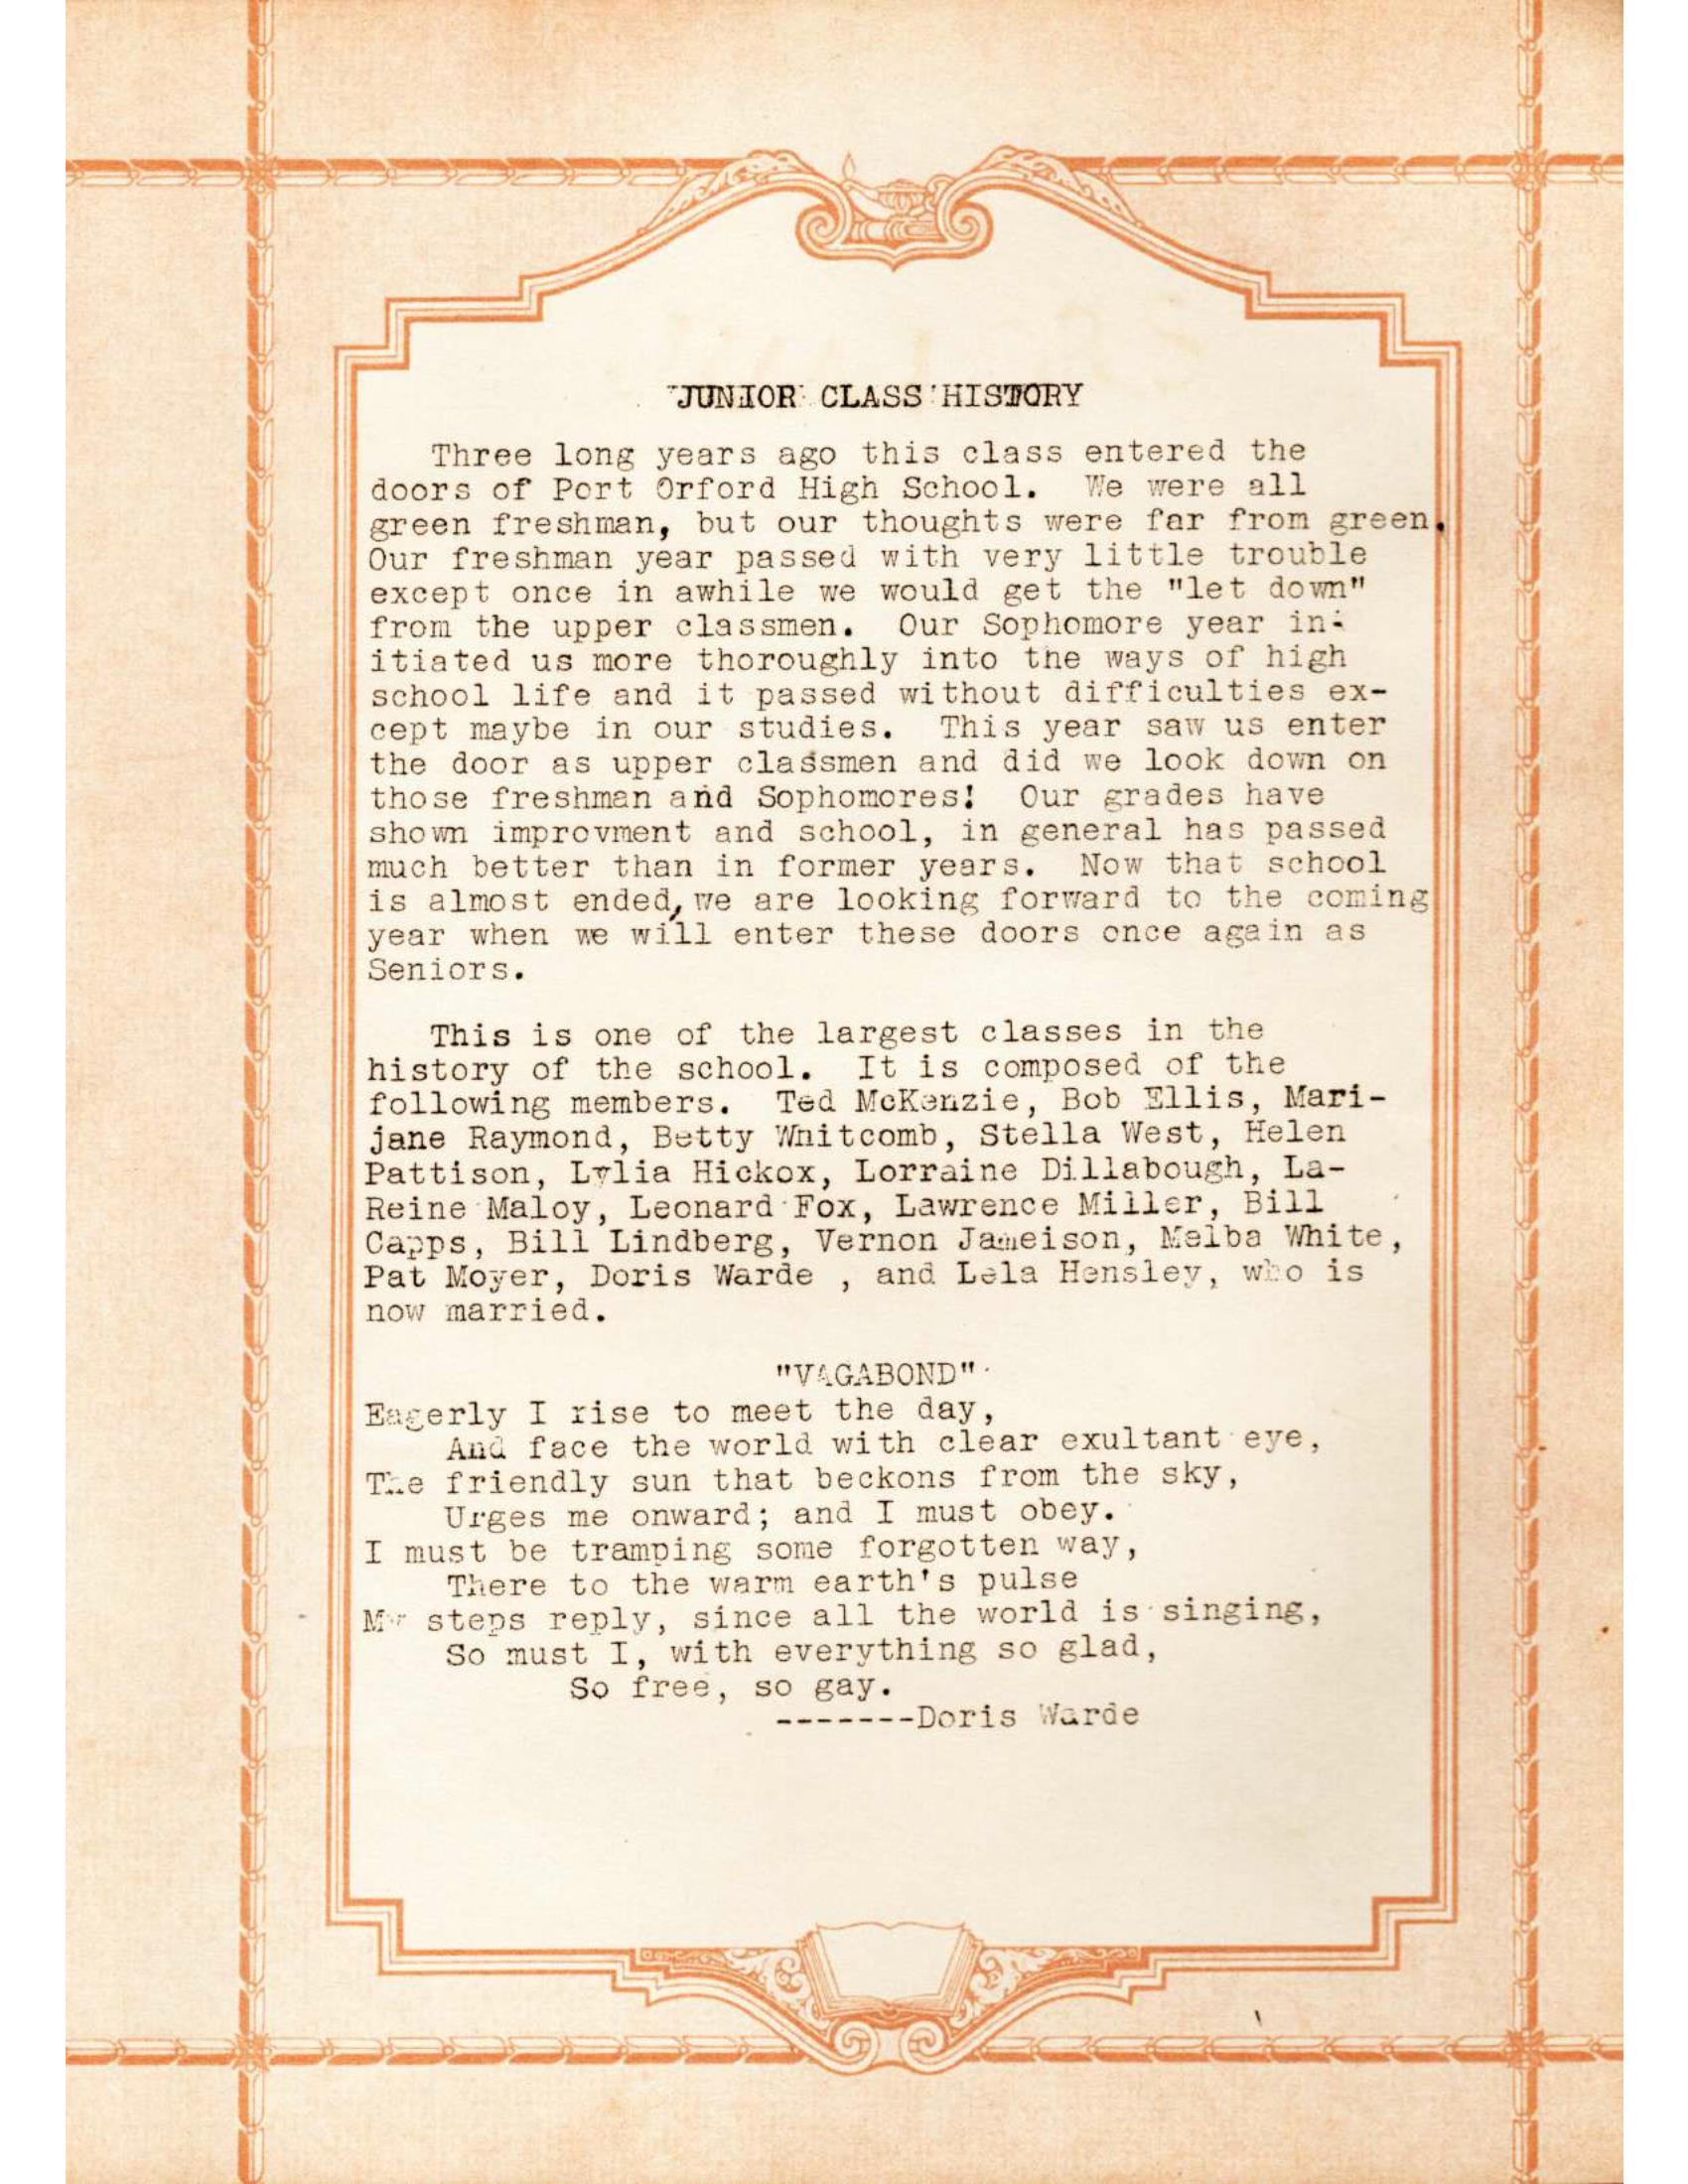 JUNIOR CLASS HISTORY
Three long years ago this class entered the
doors of Port Orford High School. We were all
green freshman, but our thoughts were far from green.
Our freshman year passed with very little trouble
except once in awhile we would get the "let down"
from the upper classmen. Our Sophomore year in-
itiated us more thoroughly into the ways of high
school life and it passed without difficulties ex-
cept maybe in our studies. This year saw us enter
the door as upper classmen and did we look down on
those freshman and Sophomores! Our grades have
shown improvment and school, in general has passed
much better than in former years. Now that school
is almost ended, we are looking forward to the coming
year when we will enter these doors once again as
Seniors.
This is one of the largest classes in the
history of the school. It is composed of the
following members. Ted McKenzie, Bob Ellis, Mari-
jane Raymond, Betty Whitcomb, Stella West, Helen
Pattison, Lylia Hickox, Lorraine Dillabough, La-
Reine Maloy, Leonard Fox, Lawrence Miller, Bill
Capps, Bill Lindberg, Vernon Jameison, Melba White,
Pat Moyer, Doris Warde , and Lela Hensley, who is
now married.
"VAGABOND"
Eagerly I rise to meet the day,
And face the world with clear exultant eye,
The friendly sun that beckons from the sky,
Urges me onward; and I must obey.
I must be tramping some forgotten way,
There to the warm earth's pulse
My steps reply, since all the world is singing,
So must I, with everything so glad,
So free, so gay.
-------Doris Warde